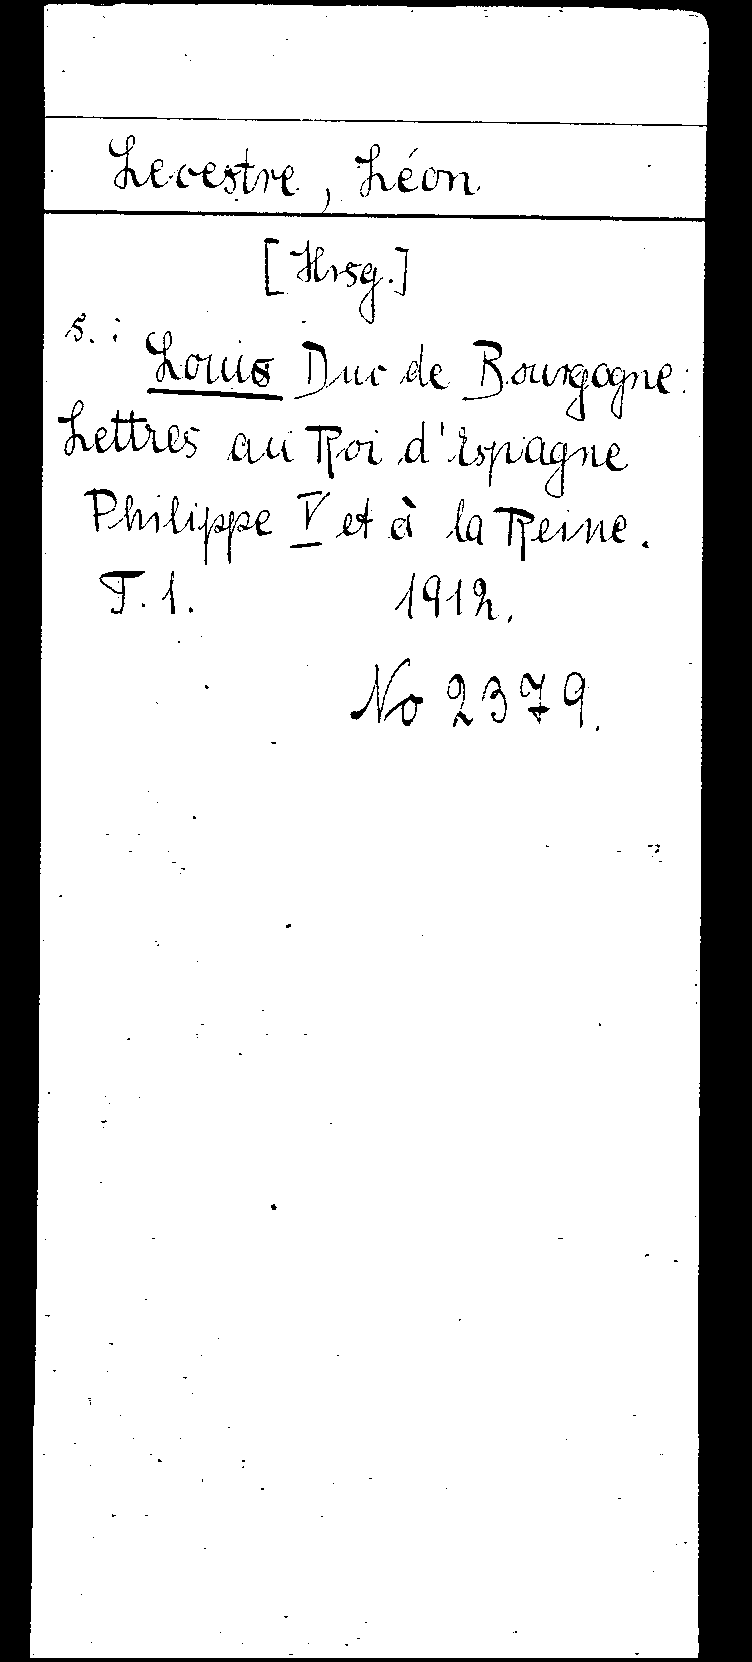 Lecestre, Léon
[Hrsg.]
s.:
Louis Duc de Bourgogne:
Lettres au Roi d'Espagne
Philippe V et à la Reine.
T. 1. 1912.
No 2379.